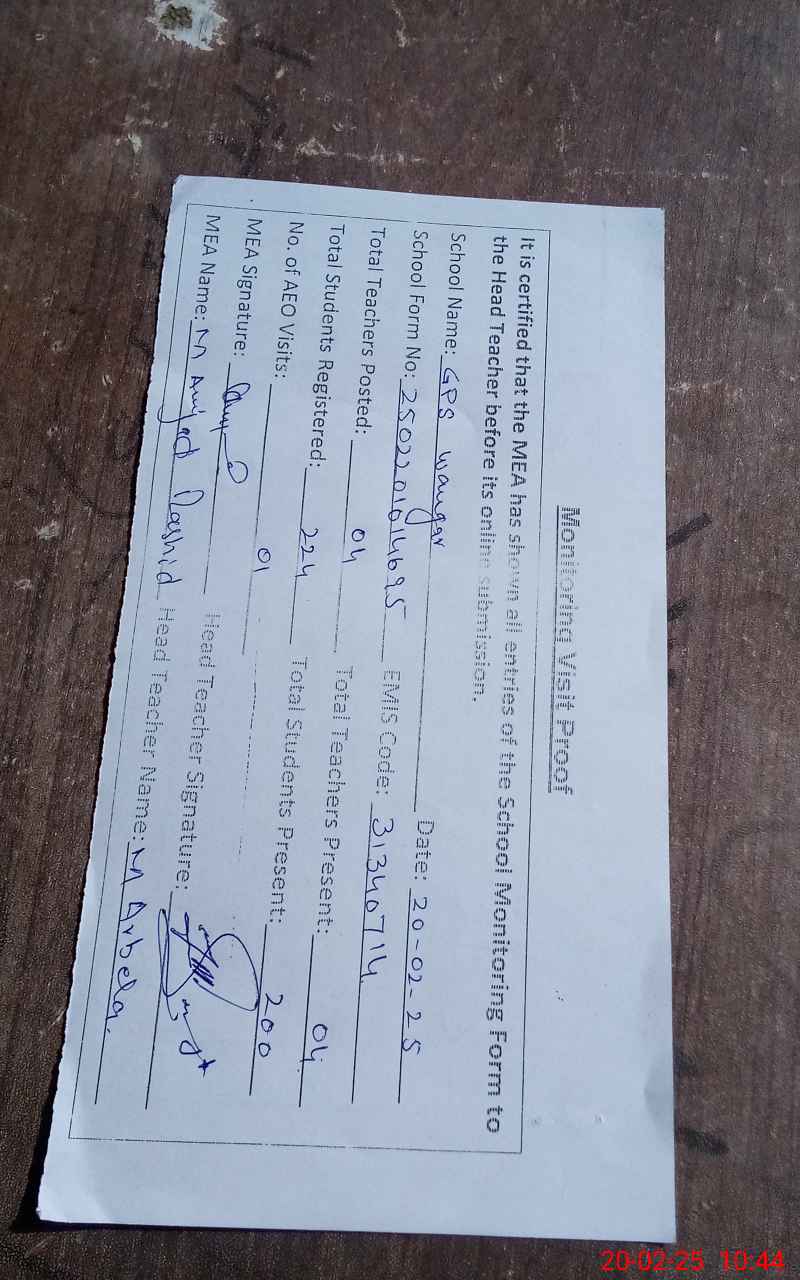 Monitoring Visit Proof
It is certified that the MEA has shown all entries of the School Monitoring Form to
the Head Teacher before its online submission.
School Name: GPS Wanger Date: 20-02-25
School Form No: 25022201014695 EMIS Code: 31340714
Total Teachers Posted: 04 Total Teachers Present: 04
Total Students Registered: 224 Total Students Present: 200
No. of AEO Visits: 01
MEA Signature: Head Teacher Signature:
MEA Name: M Amjad Rashid Head Teacher Name: M Arbela.
20-02-25 10:44